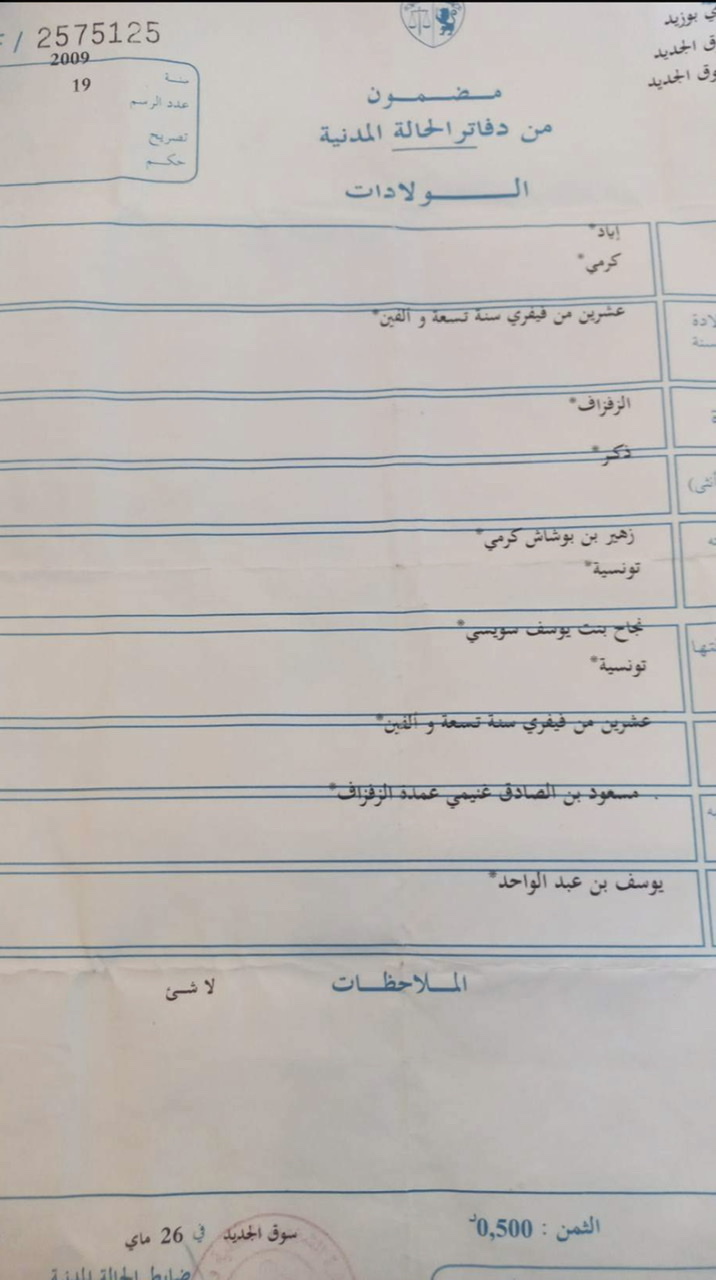 / 2575125
بوزيد
سوق الجديد
سوق الجديد
سنة 2009
عدد الرسم 19
تصريح
حكم
مضمون
من دفاتر الحالة المدنية
الولادات
إياد*
كرمي*
عشرين من فيفري سنة تسعة و ألفين*
الزفزاف*
ذكر*
زهير بن بوشاش كرمي*
تونسية*
نجاح بنت يوسف سويسي*
تونسية*
عشرين من فيفري سنة تسعة و ألفين*
مسعود بن الصادق غنيمي عمدة الزفزاف*
يوسف بن عبد الواحد*
الملاحظات
لا شئ
الثمن : 0,500د
سوق الجديد في 26 ماي
ضابط الحالة المدنية